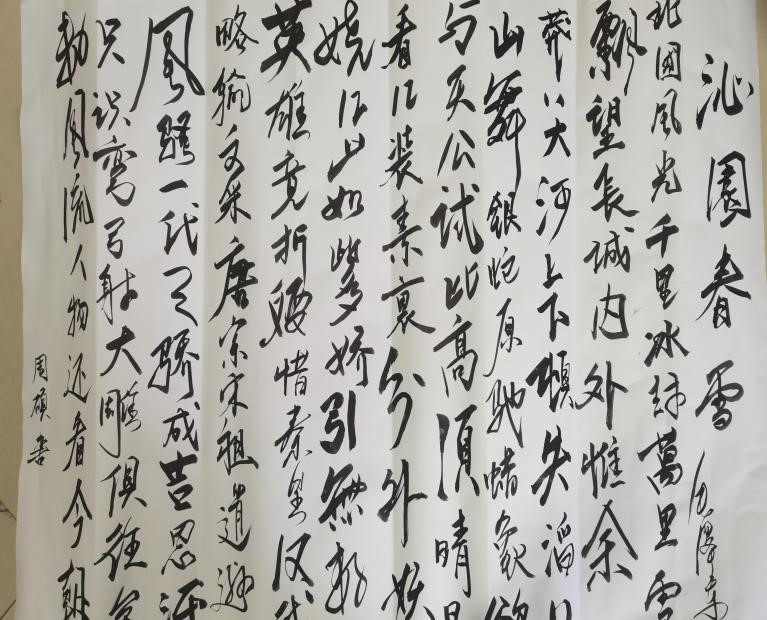 沁園春雪 毛澤东
北国風光千里冰封萬里雪
飘望長城内外惟余
莽莽大河上下頓失滔
山舞銀蛇原馳蠟象欲
与天公试比高須晴日
看红装素裏分外妖
娆江山如此多娇引無数
英雄竞折腰惜秦皇汉武
略输文采唐宗宋祖遜
風騷一代天骄成吉思汗
只识弯弓射大雕俱往矣
数風流人物还看今朝
周碩書